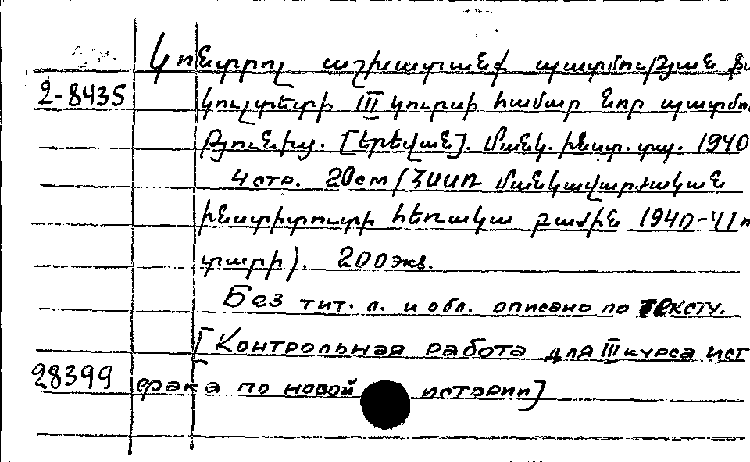 Կոնտրոլ աշխատանք պատմության ֆա
2-8435 կուլտետի III կուրսի համար նոր պատմու
թյունից. [Երևան]. Մանկ. ինստ. տպ. 1940
4 стр. 20 см (ՀՍՍՌ մանկավարժական
ինստիտուտի հեռակա բաժին 1940-41 ու
տարի). 200 экз.
Без тит. л. и обл. описано по тексту.
[Контрольная работа для III курса ист
28399 фака по новой истории]